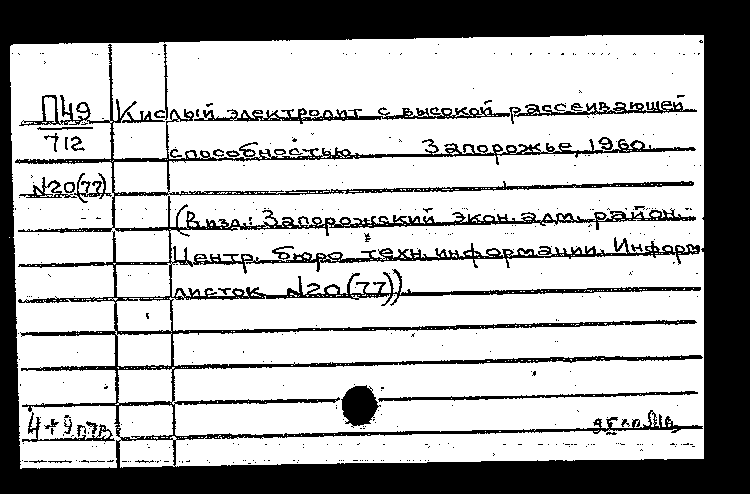 П49 Кислый электролит с высокой рассеивающей
712 способностью. Запорожье, 1960.
№20(77)
(В изд.: Запорожский экон. адм. район.
Центр. бюро техн. информации. Информ.
листок №20(77)).